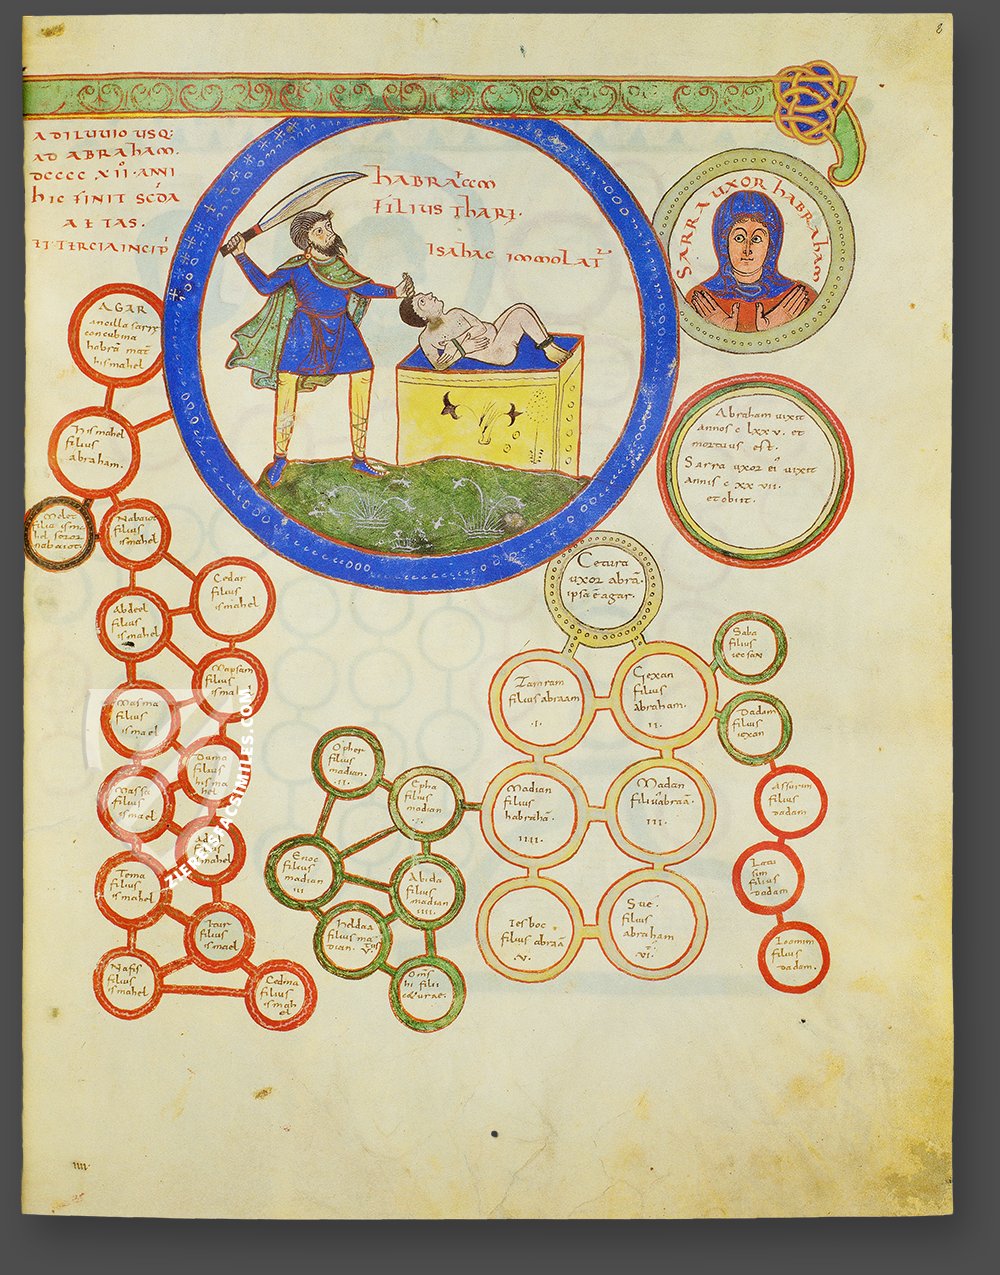 8
A DILUUIO USQ:
AD ABRAHAM.
DCCCC XII · ANI
HIC FINIT SCDA
AETAS.
ET TERCIA INCIP
HABRAAM
FILIUS THARE.
ISAHAC IMMOLAT
SARRA UXOR HABRAHAM
AGAR
ancilla sarre
concubina
habrā mat
hismahel
Hismahel
filius
abraham.
Abraham uixit
annos c lxxv. et
mortuus est.
Sarra uxor ei uixit
annis c xx vii.
et obiit.
filia isma
hel soror
nabaioth
Nabaiot
filius
ismahel
Cedar
filius
ismahel
Abdeel
filius
ismahel
Mapsam
filius
ismael
Masma
filius
ismael
Duma
filius
hisma
hel
Massa
filius
ismahel
filius
ismahel
Tema
filius
ismahel
Itur
filius
ismael
Nafis
filius
ismahel
Cedma
filius
ismah
el
Cetura
uxor abrā.
ipsa ē agar.
Zamram
filius abraam
.I.
Gexan
filius
abraham.
II.
Madian
filius
habrahā.
IIII.
Madan
filiꝰ abraā.
III.
Iesboc
filius abraā
.V.
Sue.
filius
abraham
.VI.
Saba
filius
iecsan
Dadam
filius
iexan
Assurim
filius
dadam
Latu
sim
filius
dadam
Loomim
filius
dadam.
Opher
filius
madian.
II.
Epha
filius
madian
I.
Enoc
filius
madian
III
Abida
filius
madian
IIII.
Heldaa
filius ma
dian. V.
Om̄s
hi filii
ceturae.
IIII.
ZIEREISFACSIMILES.COM